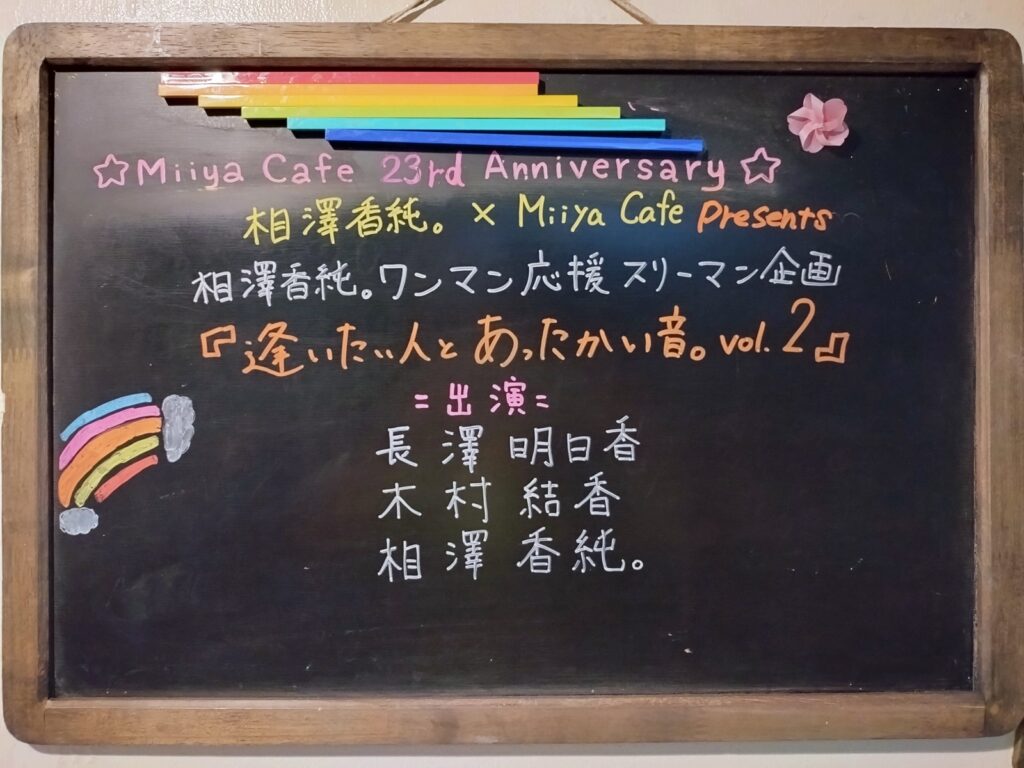 ☆Miiya Cafe 23rd Anniversary☆
相澤香純。× Miiya Cafe Presents
相澤香純。ワンマン応援 スリーマン企画
『逢いたい人とあったかい音。vol.2』
=出演=
長澤 明日香
木村 結香
相澤 香純。